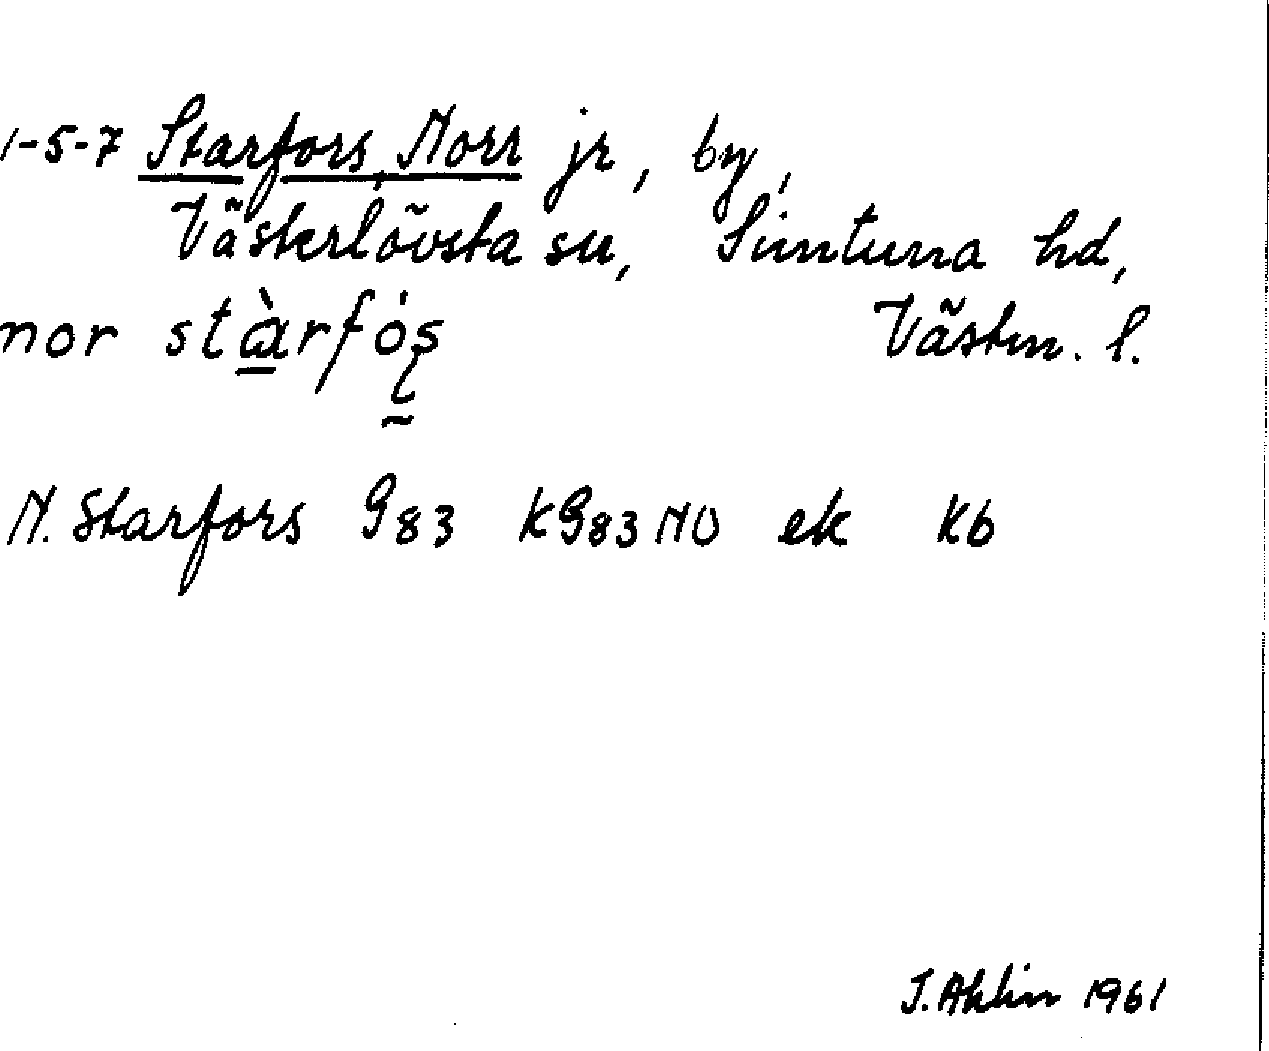 1-5-7 Starfors, Norr jr, by,
Västerlövsta sn, Simtuna hd,
nor stàrfȯş Västm. l.
N. Starfors G83 KG83NO ek Kb
J. Ahlin 1961